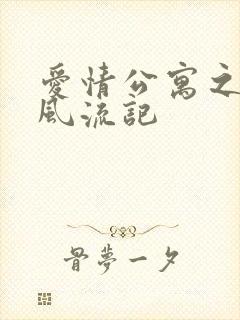 愛情公寓之
風流記
骨夢一夕